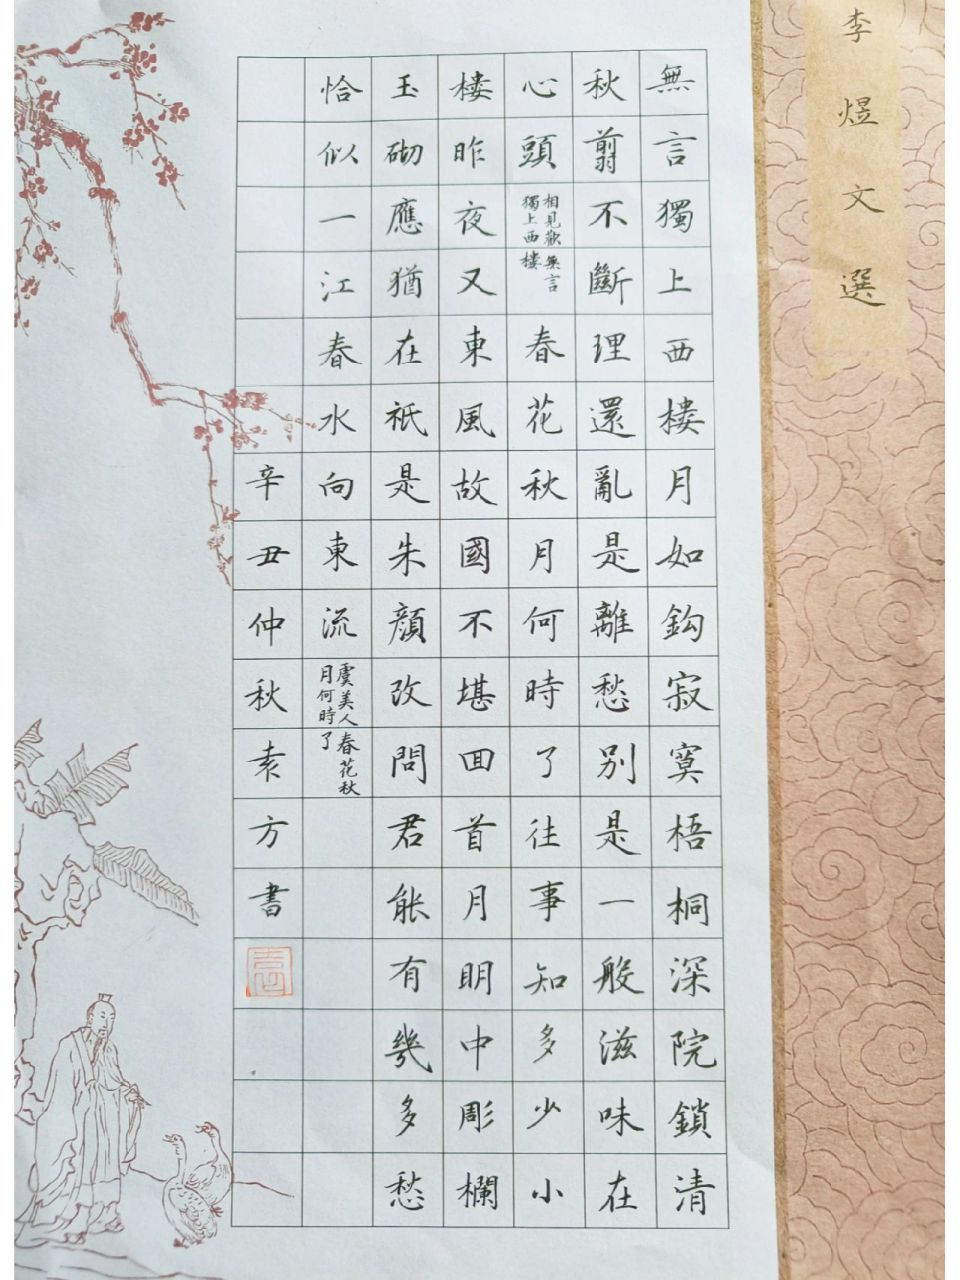 李煜文選
無言獨上西樓月如鈎寂寞梧桐深院鎖清
秋翦不斷理還亂是離愁別是一般滋味在
心頭
相見歡無言
獨上西樓
春花秋月何時了往事知多少小
樓昨夜又東風故國不堪回首月明中彫欄
玉砌應猶在祇是朱顏改問君能有幾多愁
恰似一江春水向東流
虞美人春花秋
月何時了
辛丑仲秋素方書